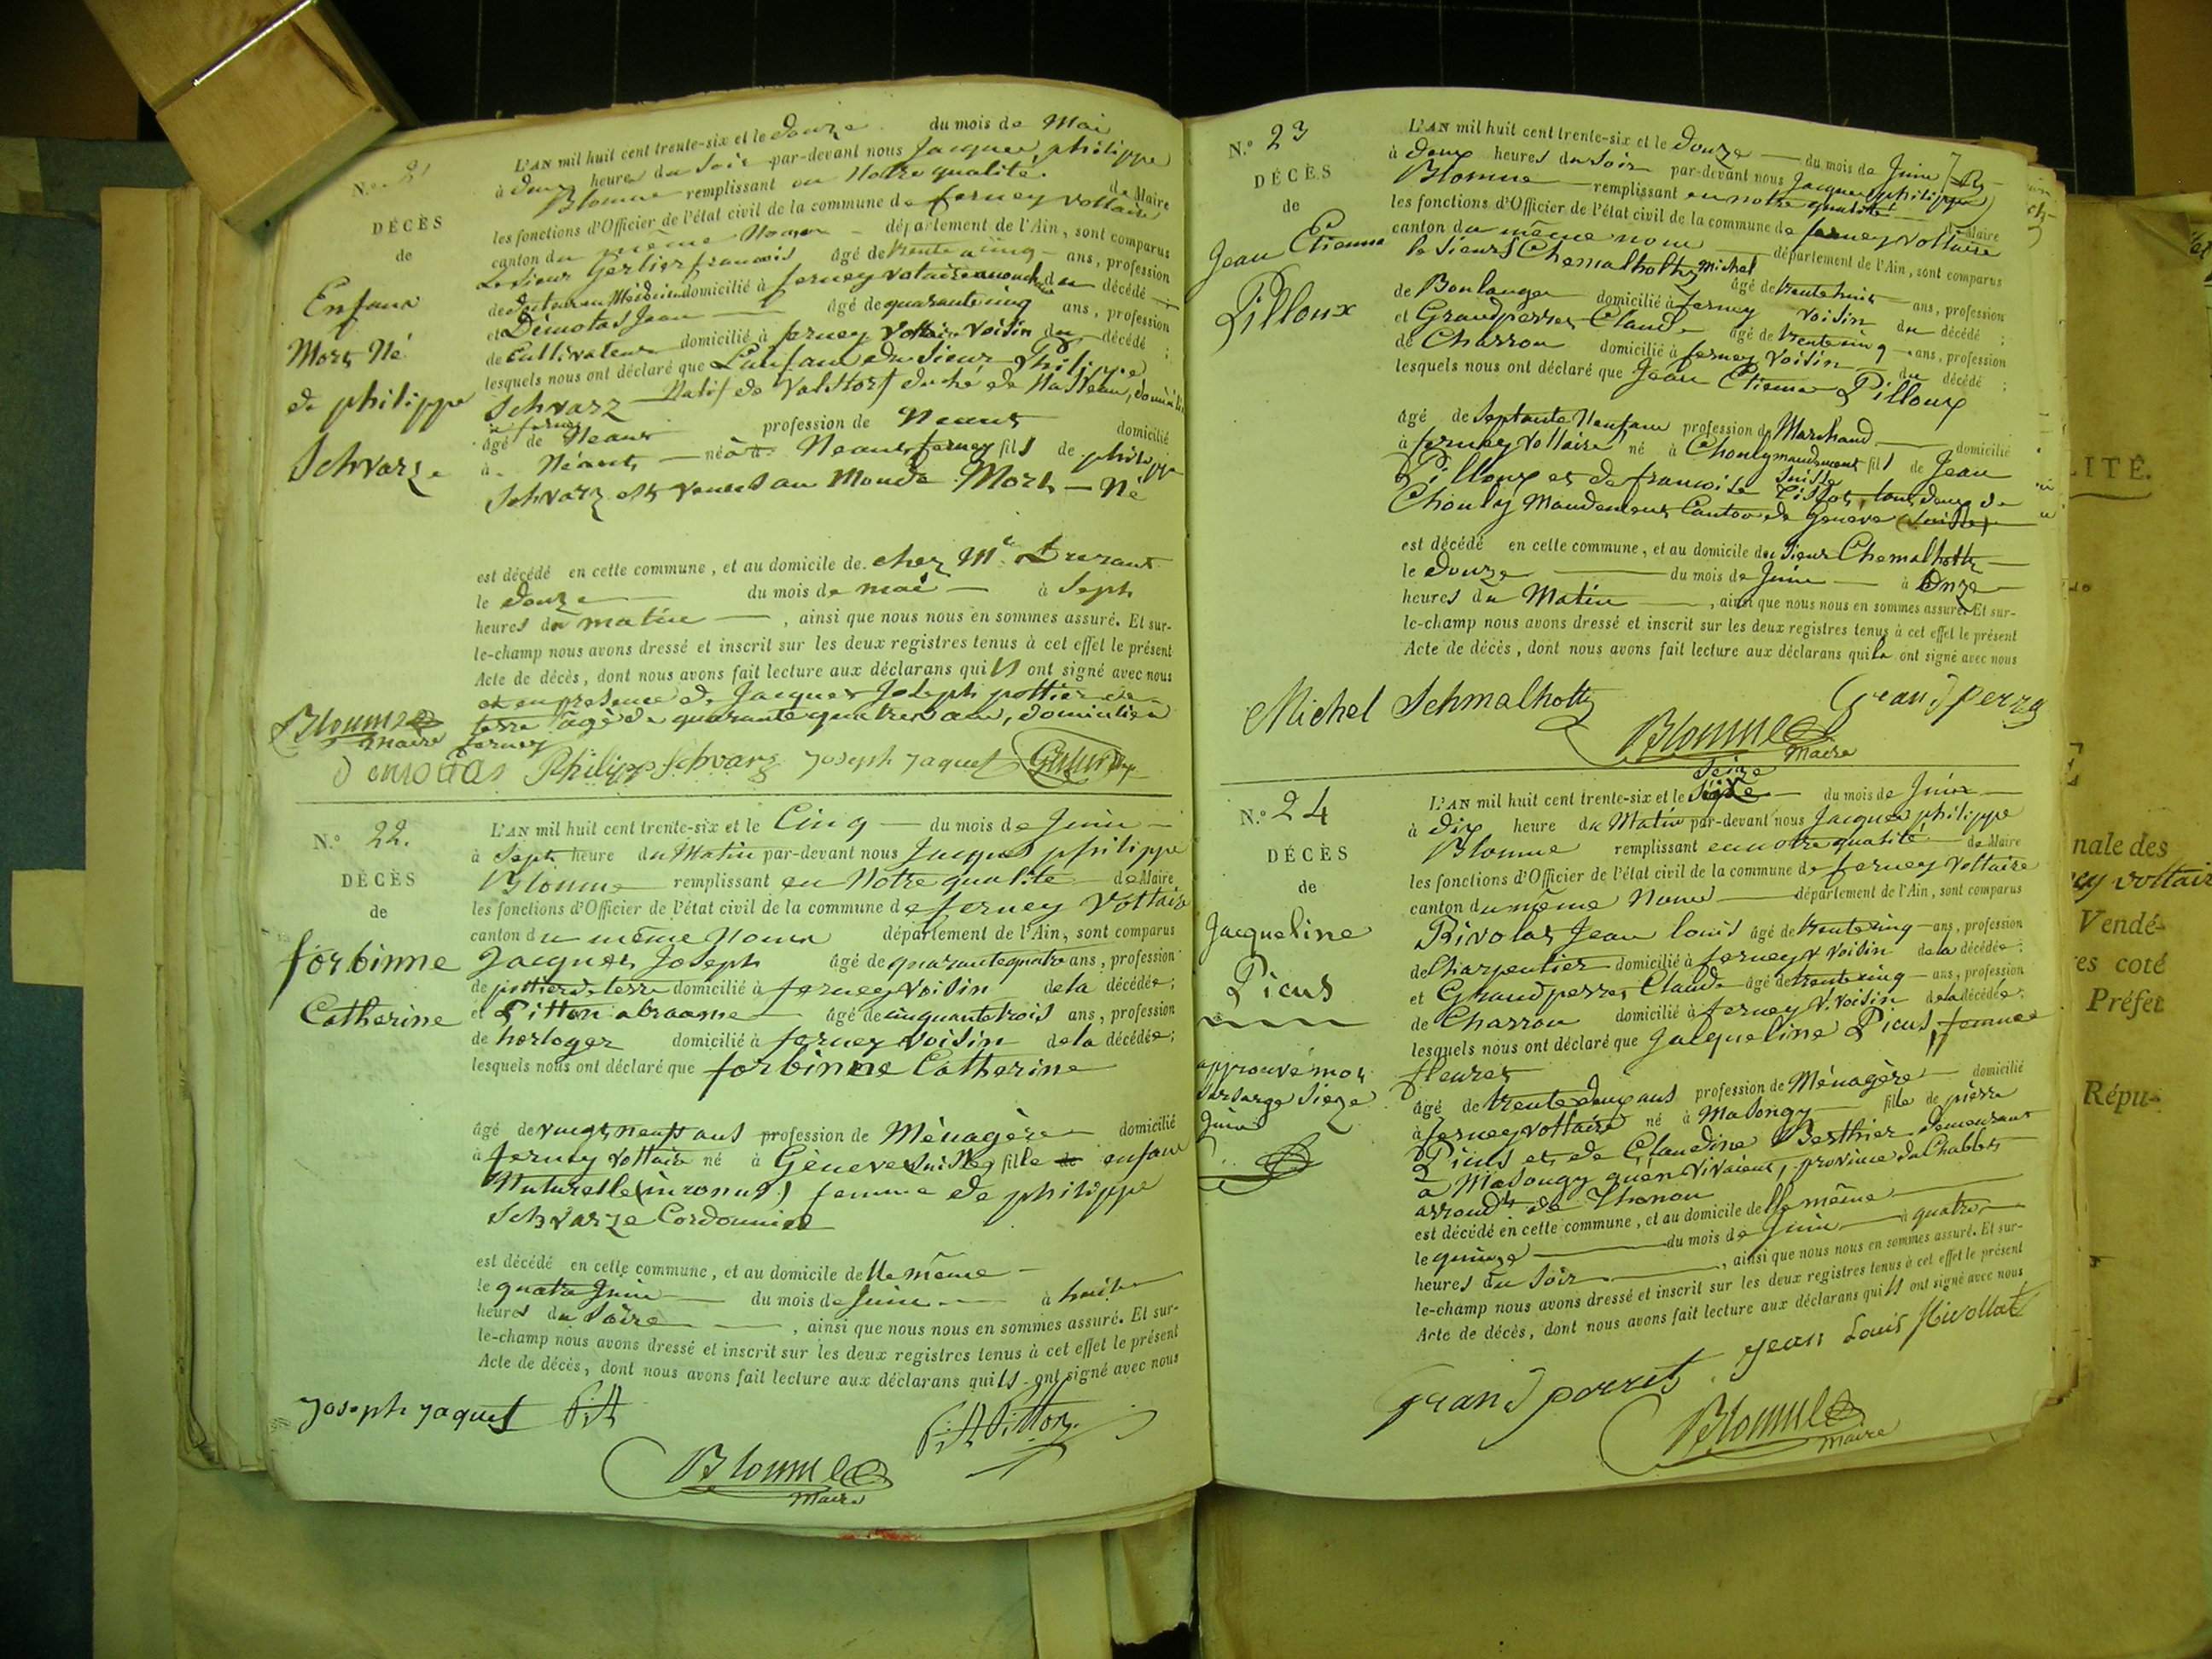 N.º 21
DÉCÈS
de
Enfant
Mort Né
de philippe
Schvarze
L'AN mil huit cent trente-six et le douze du mois de Mai
à deux heures du Soir par-devant nous Jacques philippe
Blonme remplissant en Notre qualité de Maire
les fonctions d'Officier de l'état civil de la commune de ferney voltaire
canton du meme Nom département de l'Ain, sont comparus
Le Sieur Gerlier francois âgé de trente cinq ans, profession
de docteur en Médecine domicilié à ferney voltaire du décédé
et Démotas Jean âgé de quarante cinq ans, profession
de Cultivateur domicilié à ferney Voltair Voisin du décédé ;
lesquels nous ont déclaré que L'enfant du Sieur Philippe
Schvarz Natif de duché de Nasseau,
à ferney
âgé de Neant profession de Neant domicilié
à Néant né à Neant ferney fils de philippe
Schvarz est venus au Monde Mort - Né
est décédé en cette commune, et au domicile de chez Mr Durant
le douze du mois de mai à Sept
heures du matin , ainsi que nous nous en sommes assuré. Et sur-
le-champ nous avons dressé et inscrit sur les deux registres tenus à cet effet le présent
Acte de décès, dont nous avons fait lecture aux déclarans qui ls ont signé avec nous
et en presence de Jacques Joseph pottier de
terre âgé de quarante quatres ans, domicilié à
ferney
Blonme
maire
demottas Philipp Schvarz Joseph Jaquet
N.º 22.
DÉCÈS
de
forbinne
Catherine
L'AN mil huit cent trente-six et le Cinq du mois de Juin
à Sept heure du Matin par-devant nous Jacques philippe
Blonme remplissant en Notre qualité de Maire
les fonctions d'Officier de l'état civil de la commune de ferney Voltair
canton du même Nom département de l'Ain, sont comparus
Jacques Joseph âgé de quarante quatre ans, profession
de pottier de terre domicilié à ferney voisin de la décédée ;
et Pitton abraame âgé de cinquante trois ans, profession
de horloger domicilié à ferney Voisin de la décédée ;
lesquels nous ont déclaré que forbinne Catherine
âgé de vingt neuf ans profession de Ménagère domicilié
à ferney voltaire né à Gèneve Suisse fille de enfant
Naturelle (inconus) femme de philippe
Schvarze Cordonnier
est décédé en cette commune, et au domicile de lle même
le quatre Juin du mois de Juin à huit
heures du Soire , ainsi que nous nous en sommes assuré. Et sur-
le-champ nous avons dressé et inscrit sur les deux registres tenus à cet effet le présent
Acte de décès, dont nous avons fait lecture aux déclarans qui ls ont signé avec nous
Joseph Jaquet Pitt Pitt Pitton
Blonme
Maire
N.º 23
DÉCÈS
de
Jean Etienne
Pilloux
L'AN mil huit cent trente-six et le douze du mois de Juin
à deux heures du Soir par-devant nous Jacques philippe
Blonme remplissant en notre qualité de Maire
les fonctions d'Officier de l'état civil de la commune de ferney voltaire
canton du même nom département de l'Ain, sont comparus
le Sieurs Chemalholtz Michel âgé de trente huit ans, profession
de Boulanger domicilié à ferney voisin du décédé ;
et Grandperres Claude âgé de trente cinq ans, profession
de Charron domicilié à ferney Voisin du décédé ;
lesquels nous ont déclaré que Jean Etienne Pilloux
âgé de Septante Neuf ans profession de Marchand domicilié
à ferney Voltaire né à Chouly mandement fils de Jean
Suisse
Pilloux et de francoise Tissot, tous deux de
Chouly Mandement Canton de Genève (Suisse)
est décédé en cette commune, et au domicile du Sieur Chemalholtz
le douze du mois de Juin à Onze
heures du Matin , ainsi que nous nous en sommes assuré. Et sur-
le-champ nous avons dressé et inscrit sur les deux registres tenus à cet effet le présent
Acte de décès, dont nous avons fait lecture aux déclarans qui ont signé avec nous
Michel Schmalholtz Grandperre
Blonme
Maire
N.º 24
DÉCÈS
de
Jacqueline
Picus
approuvé mot
Sursarge Sieze
Juin
Seize
L'AN mil huit cent trente-six et le du mois de Juin
à dix heure du Matin par-devant nous Jacques philippe
Blonme remplissant en notre qualité de Maire
les fonctions d'Officier de l'état civil de la commune de ferney voltaire
canton du même Nom département de l'Ain, sont comparus
Rivolat Jean louis âgé de trente cinq ans, profession
de Charpentier domicilié à ferney v voisin de la décédée ;
et Grandperres Claude âgé de trente cinq ans, profession
de Charron domicilié à ferney V. Voisin de la décédée ;
lesquels nous ont déclaré que Jacqueline Picus, femme
fleuret
âgé de trente deux ans profession de Ménagère domicilié
à ferney voltaire né à Masongy fille de pierre
Picus et de Claudine Berthier demeurant
à Masongy quen vivaient, province du Chablet
arrondt de Thonon
est décédé en cette commune, et au domicile de lle même
le quinze du mois de Juin à quatre
heures du Soir , ainsi que nous nous en sommes assuré. Et sur-
le-champ nous avons dressé et inscrit sur les deux registres tenus à cet effet le présent
Acte de décès, dont nous avons fait lecture aux déclarans qui ls ont signé avec nous
Grand perret Jean Louis Rivollat
Blonme
Maire
LITÉ.
nale des
ey voltair
Vendé-
es coté
Préfet
Répu-